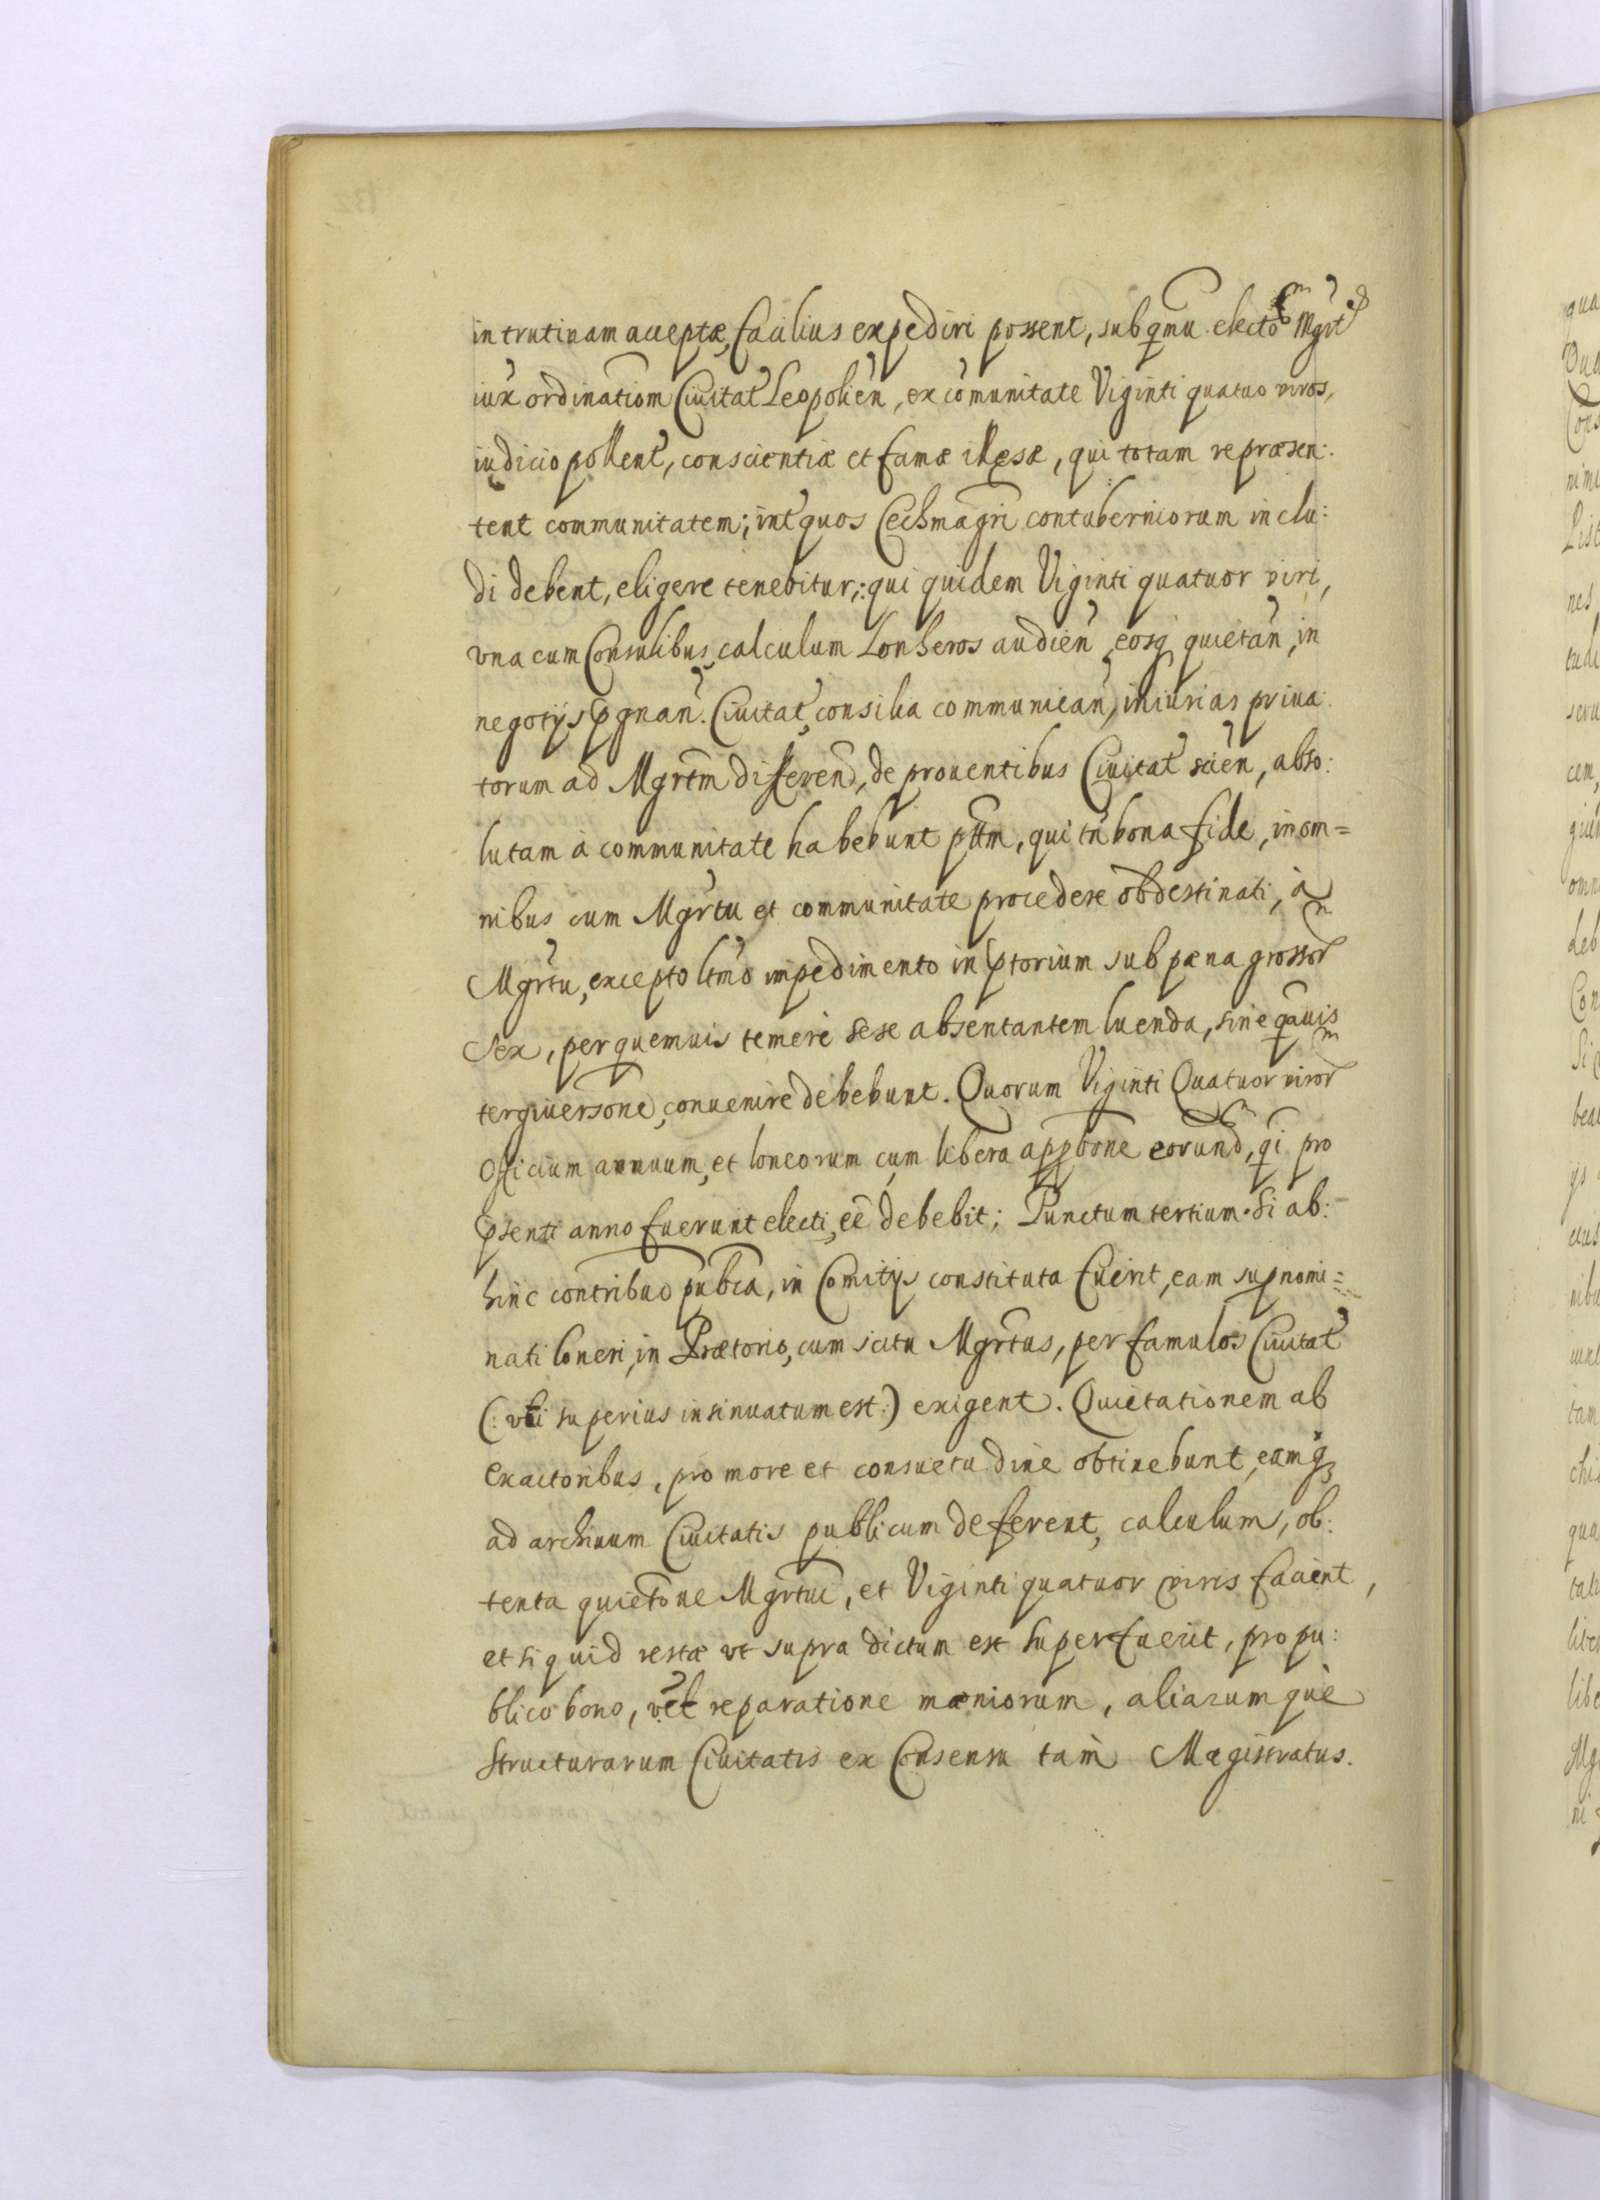 in trutinam acceptæ, facilius expediri possent, sub qmu electo Mgrt
iux ordinatiom Ciuitat Leopolien, ex comunitate Viginti quatuo viros,
iudicio pollent, conscientiæ et famæ illesæ, qui totam repræsen:
tent communitatem; int quos Cechmagri contuberniorum inclu:
di debent, eligere tenebitur: qui quidem Viginti quatuor viri,
vna cum Consulibus, calculum Lonheros audien, eosq quietan, in
negotys pgnan. Ciuitat, consilia communican, iniurias priua:
torum ad Mgrtm differen, de prouentibus Ciuitat scien, abso:
lutam à communitate habebunt pttm, qui tn bona fide, in om=
nibus cum Mgrtu et communitate procedere obdestinati, à
Mgrtu, excepto ltmo impedimento in ptorium sub pæna grossor
sex, per quemuis temerè sese absentantem luenda, sine qauis
tergiuersone, conuenire debebunt. Quorum Viginti Quatuor viror
officium annuum, et loneorum cum libera appbone eorund, qi pro
psenti anno fuerunt electi, ee debebit; Punctum tertium. Si ab:
hinc contribuo pubca, in Comitys constituta fuerit, eam supnomi=
nati loneri, in Prætorio, cum scitu Mgrtus, per famulos Ciuitat
(: vti superius insinuatum est:) exigent. Quietationem ab
exactoribus, pro more et consuetudine obtinebunt, eamq
ad archiuum Ciuitatis publicum deferent, calculum, ob:
tenta quietone Mgrtui, et Viginti quatuor viris facient,
et si quid restæ vt supra dictum est superfuerit, pro pu:
blico bono, vel reparatione mæniorum, aliarumquè
structurarum Ciuitatis ex Consensu tam Magistratus.